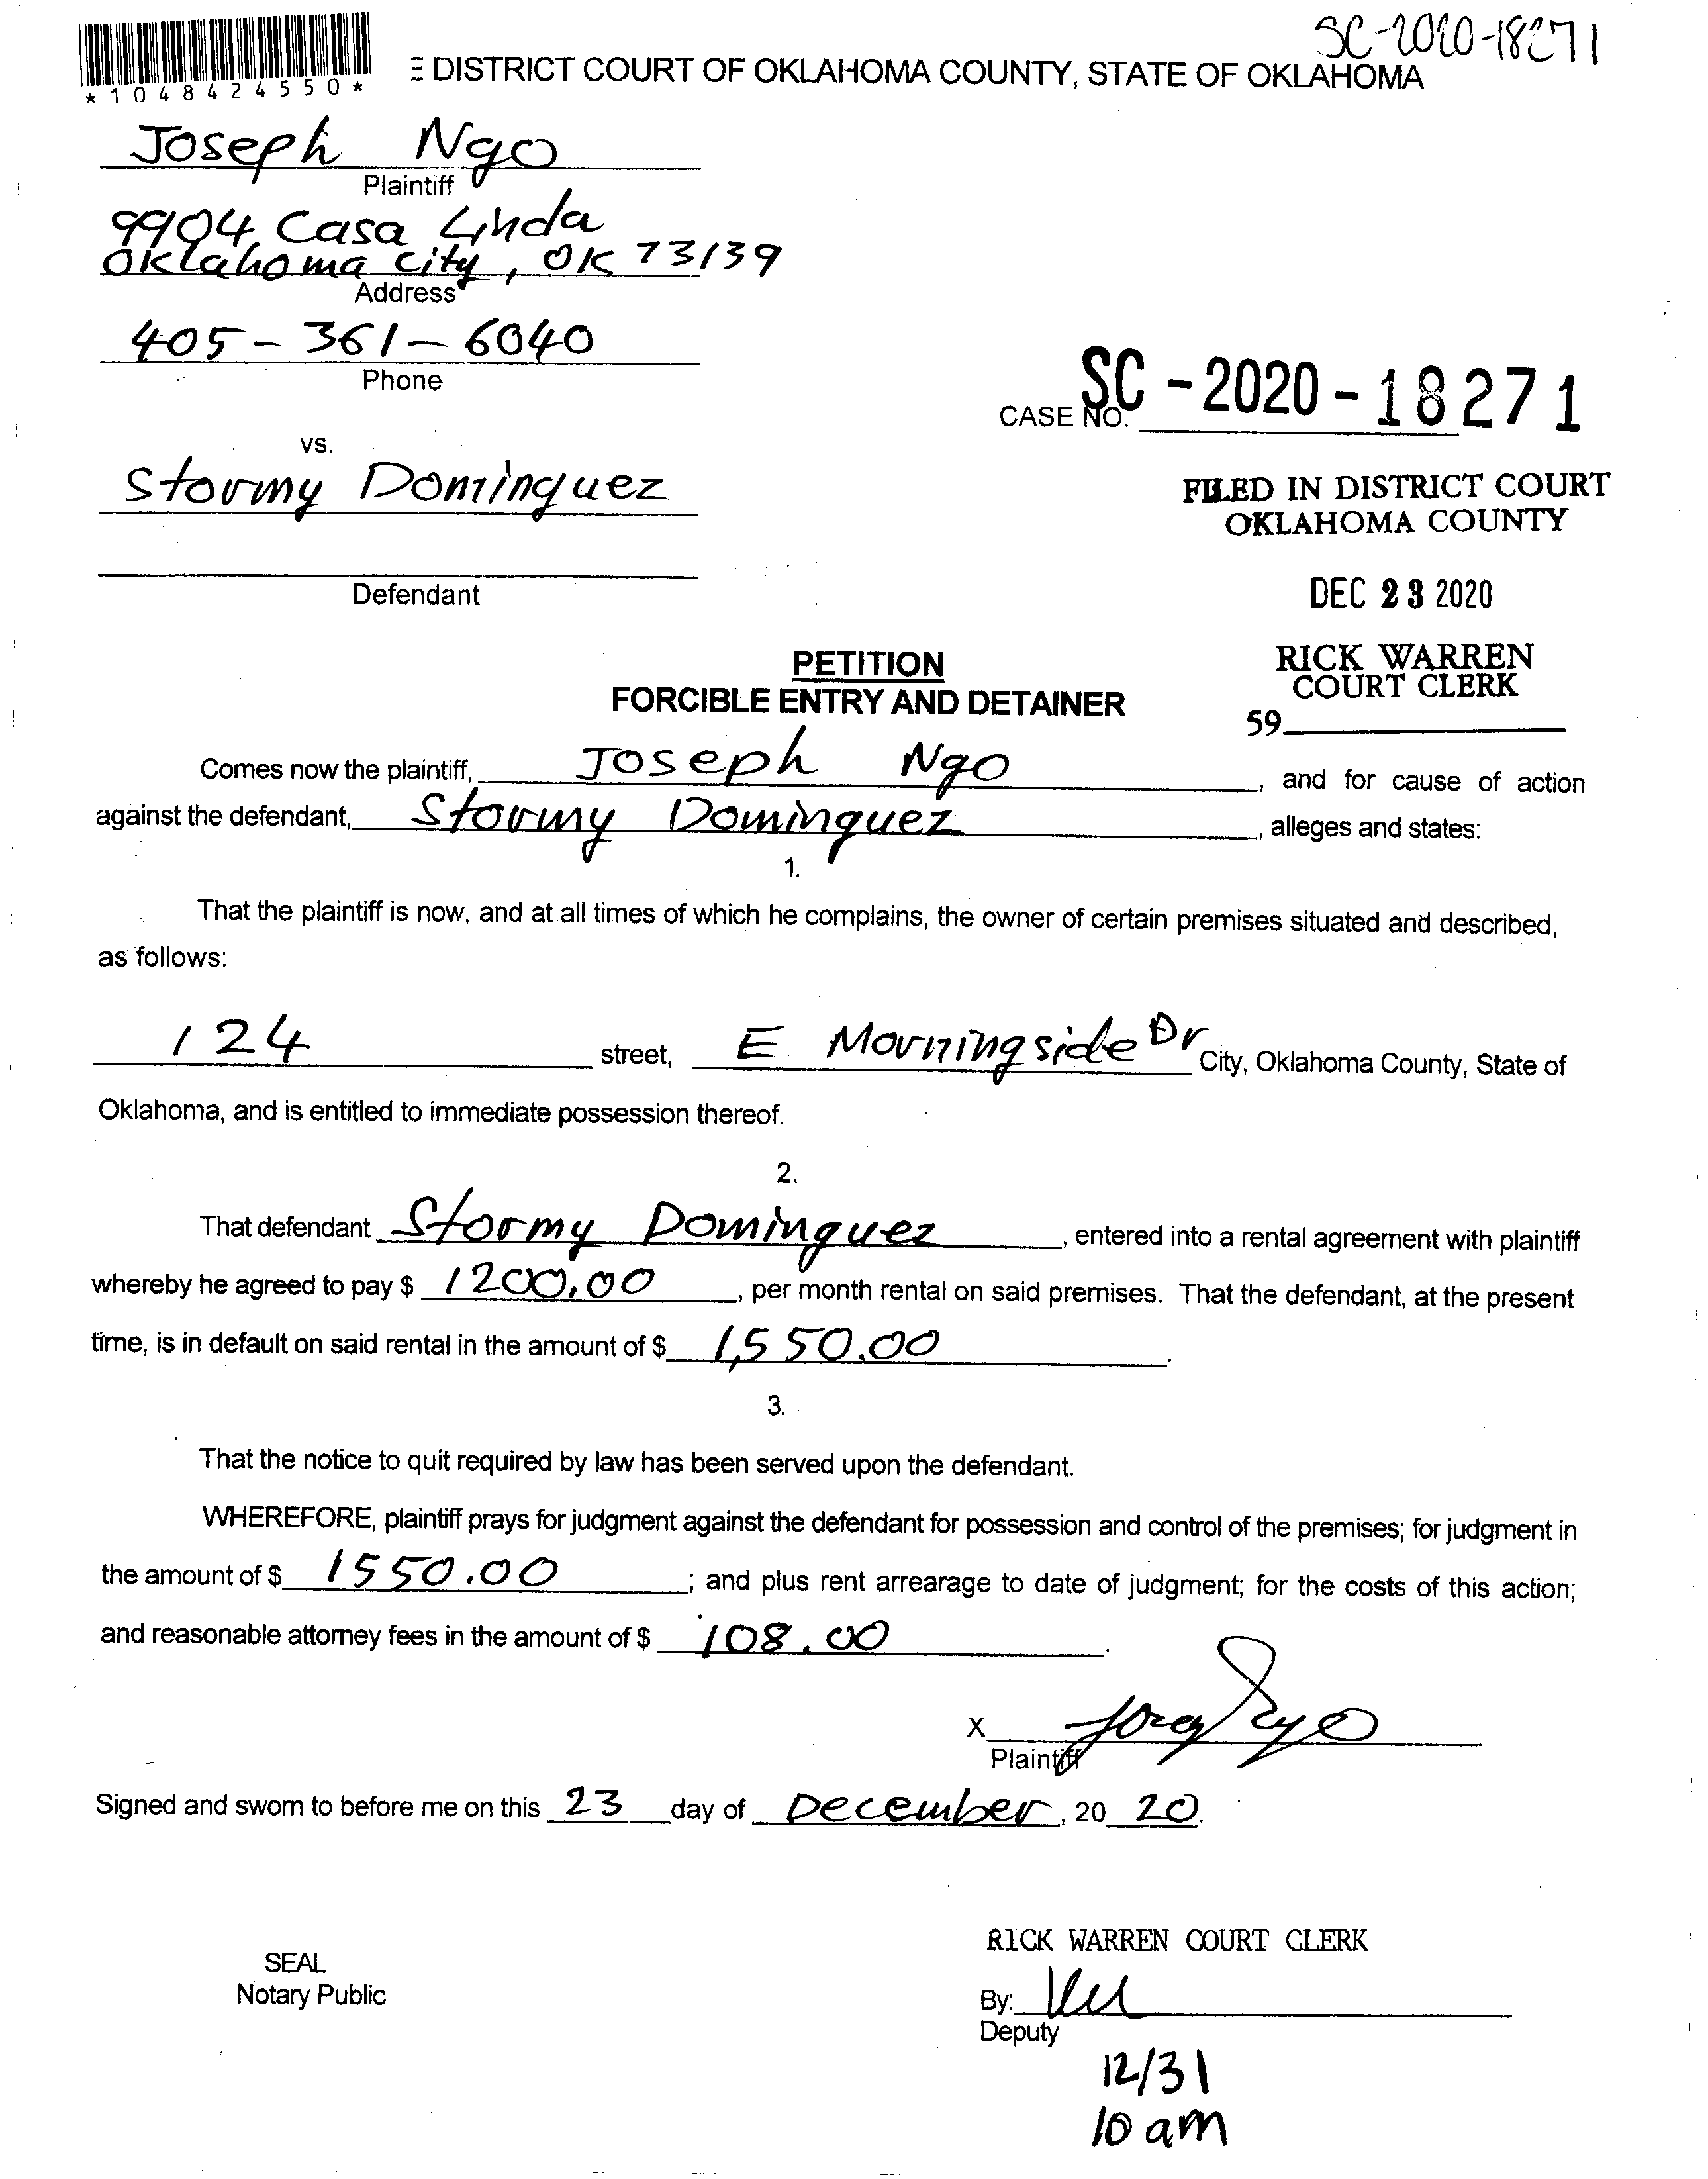 SC-2020-18271
*1048424550*
E DISTRICT COURT OF OKLAHOMA COUNTY, STATE OF OKLAHOMA
Joseph Ngo
Plaintiff
9904 Casa Linda
Oklahoma city, OK 73139
Address
405-361-6040
Phone
CASE NO. SC-2020-18271
vs.
Stormy Dominguez
Defendant
FILED IN DISTRICT COURT
OKLAHOMA COUNTY
DEC 23 2020
RICK WARREN
COURT CLERK
59
PETITION
FORCIBLE ENTRY AND DETAINER
Comes now the plaintiff, Joseph Ngo, and for cause of action
against the defendant, Stormy Dominguez, alleges and states:
1.
That the plaintiff is now, and at all times of which he complains, the owner of certain premises situated and described,
as follows:
124 street, E Morningside Dr City, Oklahoma County, State of
Oklahoma, and is entitled to immediate possession thereof.
2.
That defendant Stormy Dominguez, entered into a rental agreement with plaintiff
whereby he agreed to pay $ 1200.00, per month rental on said premises. That the defendant, at the present
time, is in default on said rental in the amount of $ 1,550.00.
3.
That the notice to quit required by law has been served upon the defendant.
WHEREFORE, plaintiff prays for judgment against the defendant for possession and control of the premises; for judgment in
the amount of $ 1550.00; and plus rent arrearage to date of judgment; for the costs of this action;
and reasonable attorney fees in the amount of $ 108.00.
X
Plaintiff
Signed and sworn to before me on this 23 day of December, 20 20.
SEAL
Notary Public
RICK WARREN COURT CLERK
By:
Deputy
12/31
10 am